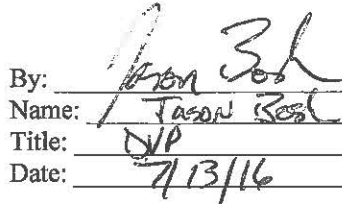 By: Jason Bosh
Name: Jason Bosh
Title: DVP
Date: 7/13/16